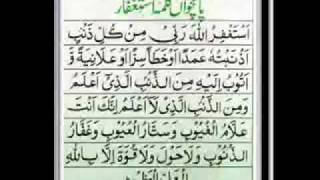 پانچواں کلمہ استغفار
اَسْتَغْفِرُ اللهَ رَبِّیْ مِنْ كُلِّ ذَنْۢبٍ
اَذْنَبْتُهٗ عَمَدًا اَوْ خَطَأً سِرًّا اَوْ عَلَانِیَةً وَّ
اَتُوْبُ اِلَیْهِ مِنَ الذَّنْۢبِ الَّذِیْٓ اَعْلَمُ
وَمِنَ الذَّنْۢبِ الَّذِیْ لَآ اَعْلَمُ اِنَّكَ اَنْتَ
عَلَّامُ الْغُیُوْبِ وَسَتَّارُ الْعُیُوْبِ وَغَفَّارُ
الذُّنُوْبِ وَلَا حَوْلَ وَلَا قُوَّةَ اِلَّا بِاللهِ
الْعَظِیْمِ